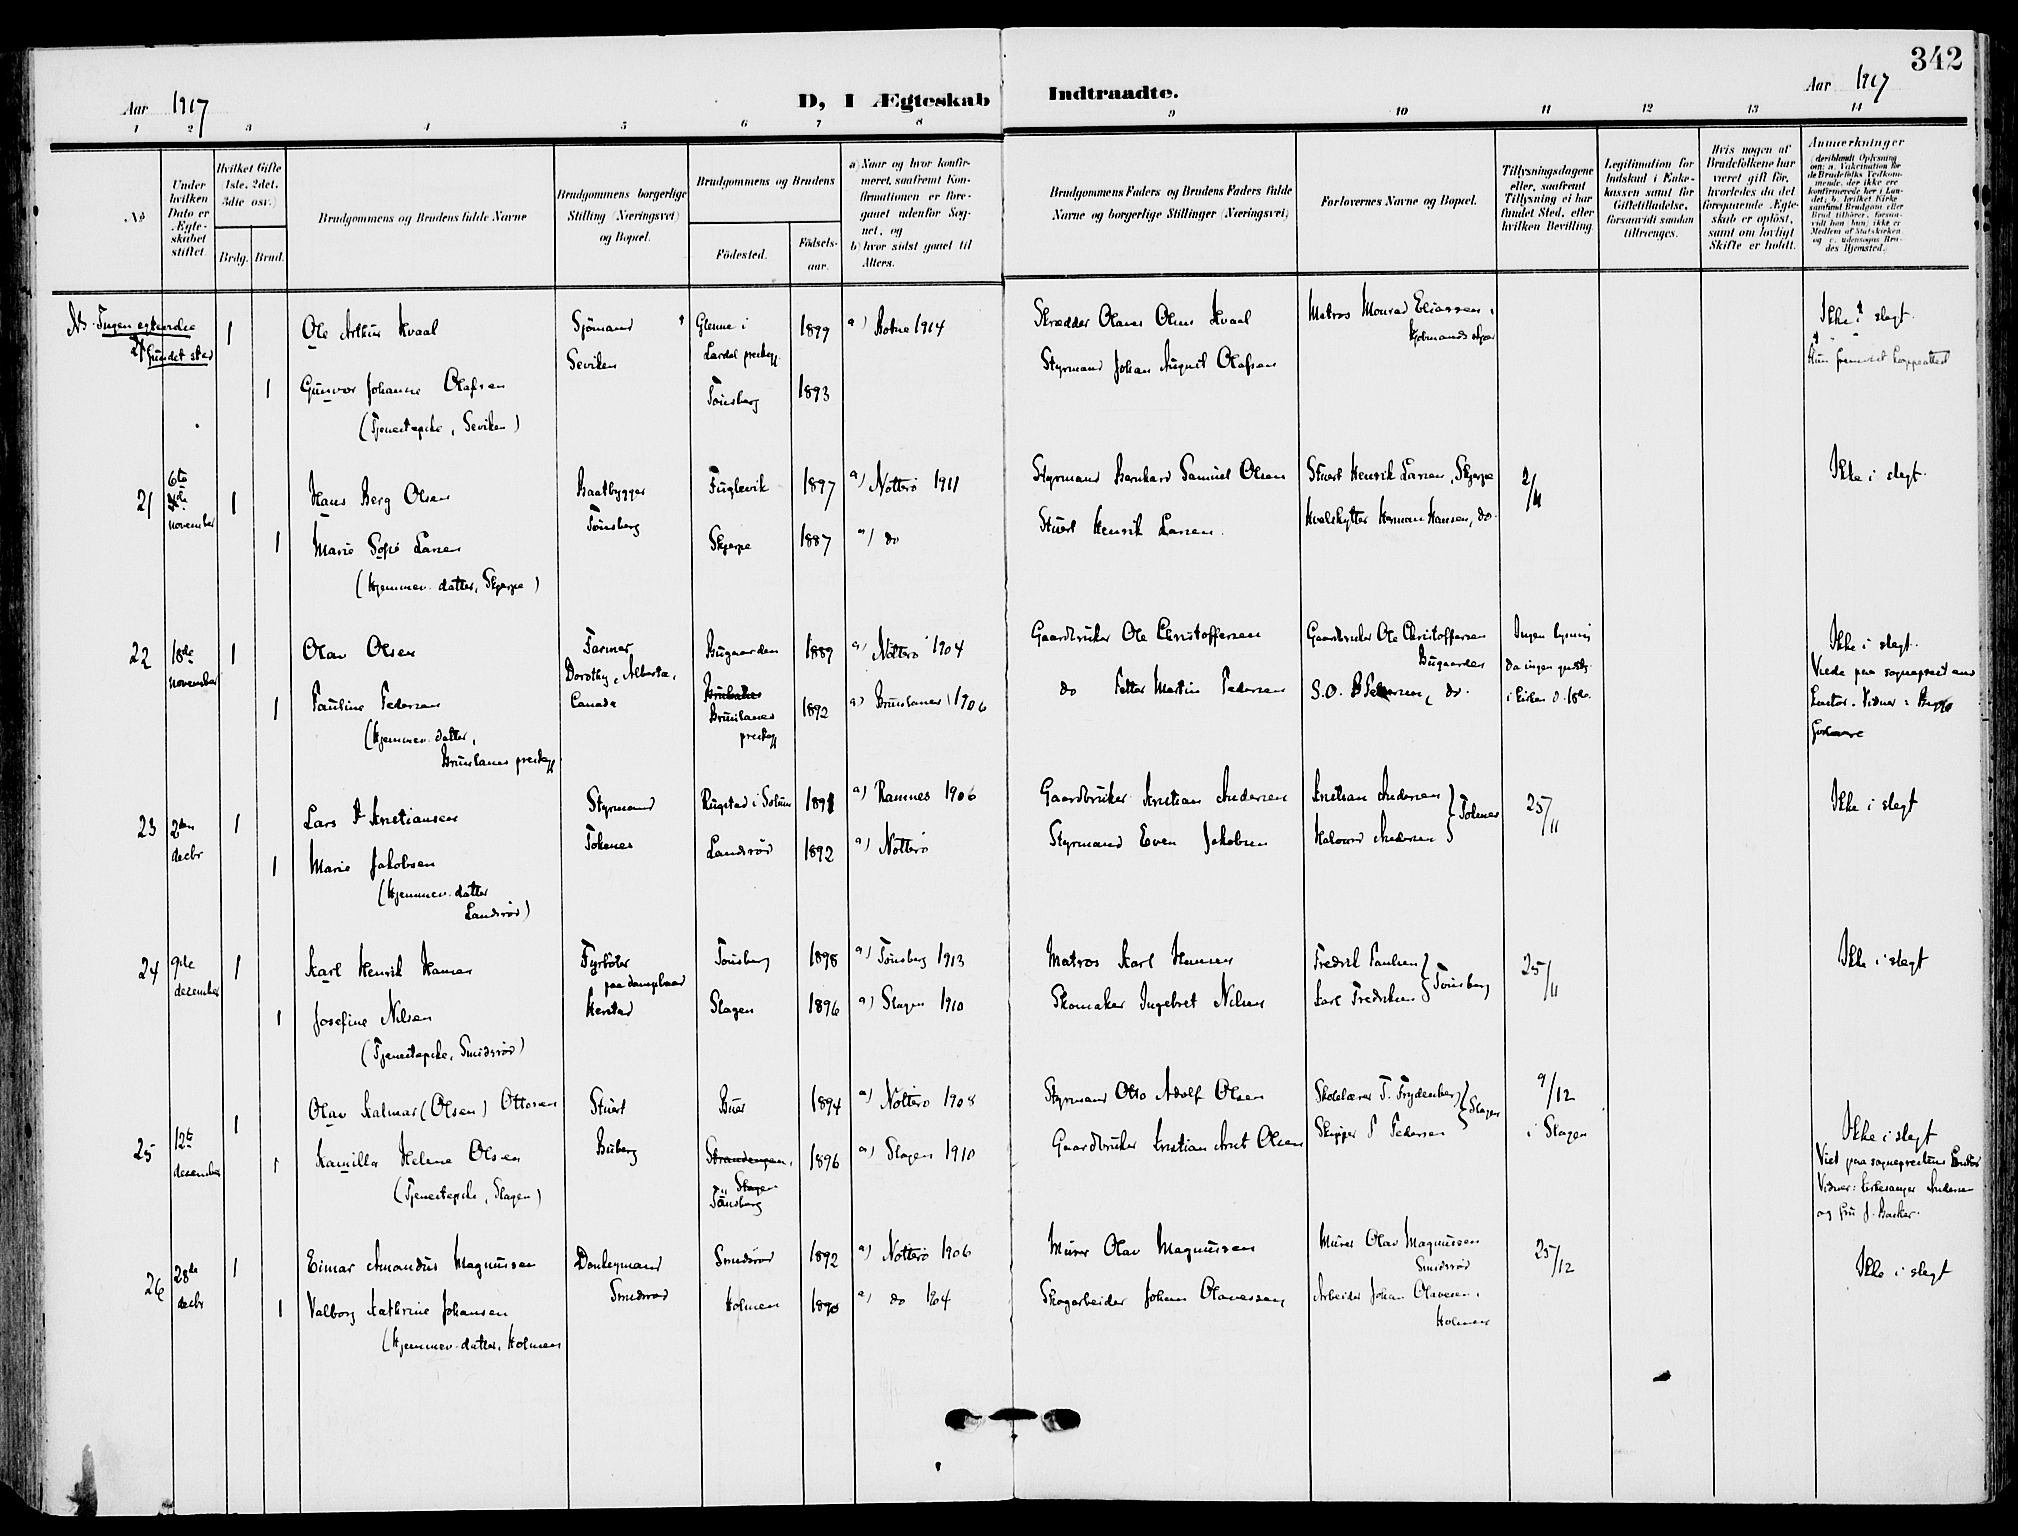 342
Aar 1917
D, I Ægteskab Indtraadte.
Aar 1917
1 2 3 4 5 6 7 8 9 10 11 12 13 14
No
Under hvilken Dato er Ægteskabet stiftet.
Hvilket Gifte 1ste, 2det, 3die osv.)
Brdg. Brud.
Brudgommens og Brudens fulde Navne
Brudgommens borgerlige Stilling (Næringsvei) og Bopæl.
Brudgommens og Brudens
Fødested.
Fødselsaar.
a) Naar og hvor konfirmeret, saafremt Konfirmationen er foregaaet udenfor Sognet, og
b) hvor sidst gaaet til Alters.
Brudgommens Faders og Brudens Faders fulde Navne og borgerlige Stillinger (Næringsvei)
Forlovernes Navne og Bopæl.
Tillysningsdagene eller, saafremt Tillysning ei har fundet Sted, efter hvilken Bevilling.
Legitimation for Indskud i Enkekassen samt for Giftetilladelse, forsaavidt saadan tiltrænges.
Hvis nogen af Brudefolkene har været gift før, hvorledes da det foregaaende Ægteskab er opløst, samt om lovligt Skifte er holdt.
Anmærkninger
NB. Ingen egtevielse fundet sted
1 Ole Arthur Kvaal Sjömand Glenne i 1899 a) Botne 1914 Skrædder Olaus Olsen Kvaal Matros Monrad Eliassen, Ikke i slegt.
Seviken Lardal prestegj.
1 Gunvor Johanne Olafsen Tönsberg 1893 Styrmand Johan August Olafsen
(Tjenestepike, Seviken)
21 6te november 1 Hans Berg Olsen Baatbygger Fuglevik 1897 a) Nötterö 1911 Styrmand Bernhard Samuel Olsen Stuert Henrik Larsen, Skjerpe 2/11 Ikke i slegt.
Tönsberg
1 Marie Sofie Larsen Skjerpe 1887 a) do Stuert Henrik Larsen. Hvalskytter Herman Hansen, do.
(Hjemmev. datter, Skjerpe)
22 18de november 1 Olav Olsen Farmer Bugaarden 1889 a) Nötterö 1904 Gaardbruker Ole Christoffersen Gaardbruker Ole Christoffersen Ingen lysning Ikke i slegt.
Dorothy, Alberta, Bugaarden
1 Pauline Pedersen Canada Brunlanes prestegj. 1892 a) Brunlanes 1906 do Petter Martin Pedersen S.O. Pedersen, do.
(Hjemmev. datter,
Brunlanes prestegj.
23 2den decbr 1 Lars A Kristiansen Styrmand Rugstad i Solum 1891 a) Ramnes 1906 Gaardbruker Kristian Andersen Kristian Andersen 25/11 Ikke i slegt
Tokenes
1 Marie Jakobsen Landsröd 1892 a) Nötterö Styrmand Even Jakobsen Halvard Andersen
(Hjemmev. datter
Landsröd)
24 9de desember 1 Karl Henrik Hansen Fyrböter Tönsberg 1898 a) Tönsberg 1913 Matros Karl Hansen Fredrik Paulsen 25/11 Ikke i slegt
paa dampbaad
1 Josefine Nilsen Herstad Slagen 1896 a) Slagen 1910 Skomaker Ingebret Nilsen Karl Fredriksen Tönsberg
(Tjenestepike, Smidsröd)
25 12te desember 1 Olav Kalmar (Olsen) Ottosen Stuert Buer 1894 a) Nötterö 1908 Styrmand Otto Adolf Olsen Skolelærer T. Frydenberg Slagen 9/12 i Slagen Ikke i slegt
1 Kamilla Helene Olsen Buberg Strandengen, Slagen Tönsberg 1896 a) Slagen 1910 Gaardbruker Kristian Anet Olsen Skipper P Pedersen
(Tjenestepike, Slagen)
Viet paa sogneprestens kontor
Vidner: kirkesanger Andersen
og fru J. Backer.
26 28de decbr 1 Einar Amandus Magnussen Donkeymand Smidsröd 1892 a) Nötterö 1906 Murer Olav Magnussen Murer Olav Magnussen 25/12 Ikke i slegt
Smidsröd Smidsröd
1 Valborg Kathrine Johansen Holmen 1890 a) do 1904 Skogarbeider Johan Olavesen, Arbeider Johan Olavesen,
(Hjemmev. datter, Holmen Holmen